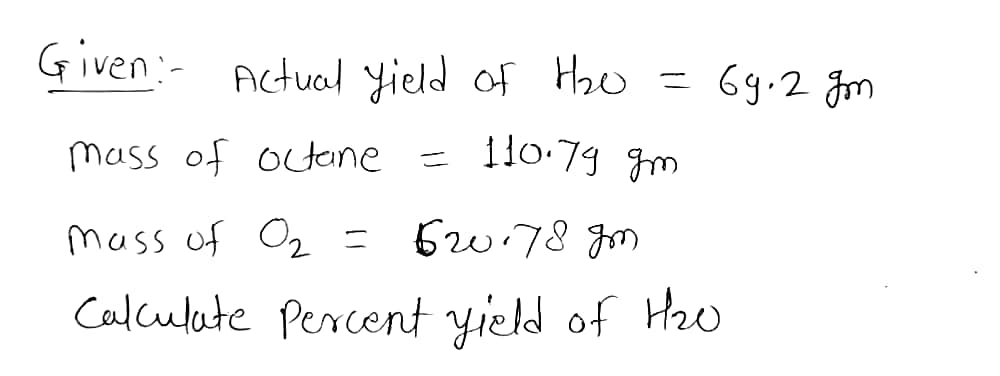 Given:- Actual yield of H2O = 69.2 gm
mass of octane = 110.79 gm
mass of O2 = 620.78 gm
Calculate Percent yield of H2O